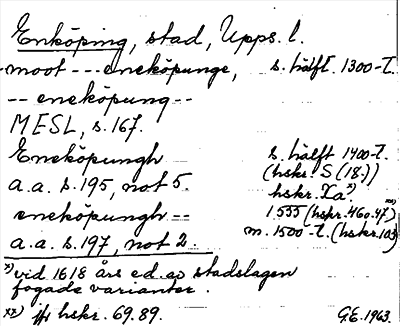 Enköping, stad, Upps. l.
-moot --- eneköpunge, s. hälft. 1300-t.
-- eneköpung --
MESL, s. 167.
Eneköpungh s. hälft 1400-t.
(hskr. S (18.))
a.a. s. 195, not 5. hskr. Xa x)
eneköpungh -- 1555 (hskr. 460.47 xx)
a.a. s. 197, not 2. m. 1500-t. (hskr. 103)
x) vid 1618 års ed. av stadslagen
fogade varianter.
xx) jfr hskr. 69.89. G.E. 1963.